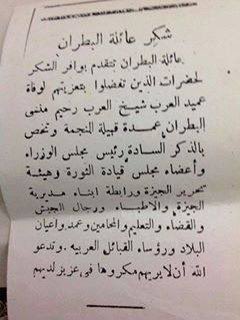 شكر عائلة البطران
عائلة البطران تتقدم بوافر الشكر
لحضرات الذين تفضلوا بتعزيتهم لوفاة
عميد العرب شيخ العرب رحيم منسى
البطران عمدة قبيلة النجمة وتخص
بالذكر السادة رئيس مجلس الوزراء
وأعضاء مجلس قيادة الثورة وهيئة
تحرير الجيزة ورابطة ابناء مديرية
الجيزة والاطباء ورجال الجيش
والقضاء والتعليم والمحامين وعمد واعيان
البلاد ورؤساء القبائل العربيه . وتدعو
الله أن لا يريهم مكروها فى عزيز لديهم